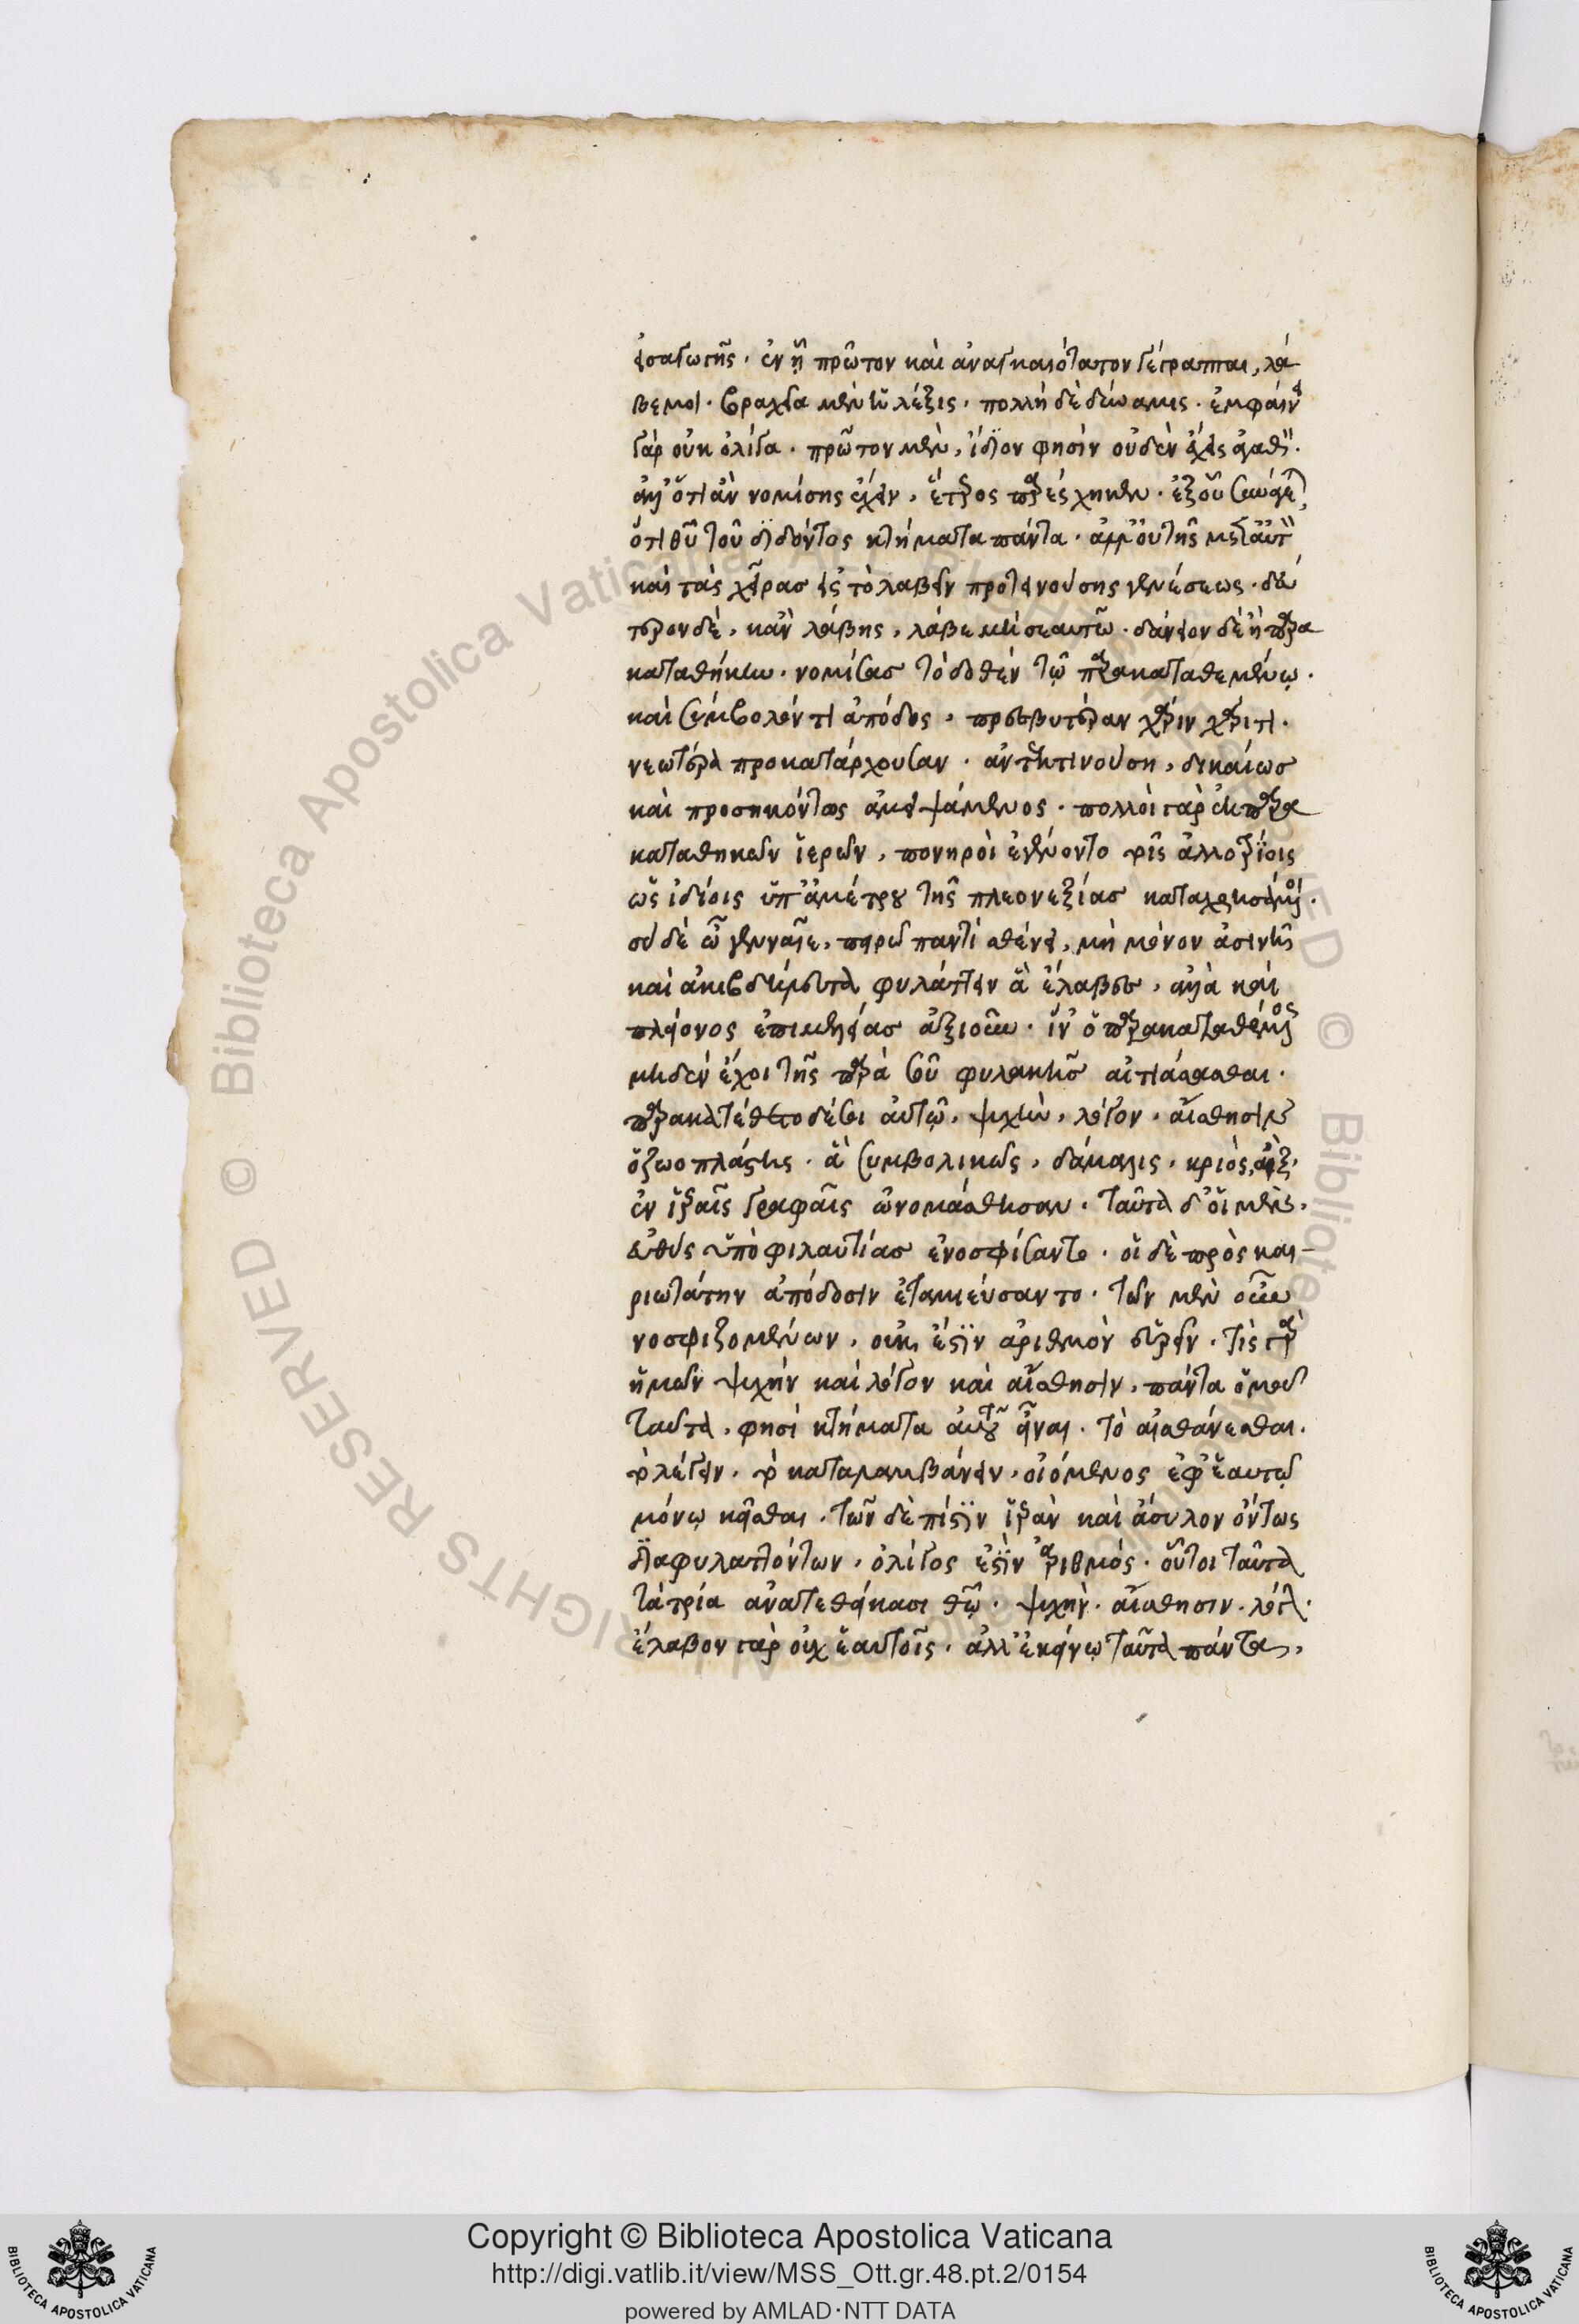 εἰσαγωγῆς · ἐν ᾗ πρῶτον καὶ ἀναγκαιότατον γέγραπται, λά
βε μοι · βραχεῖα μὲν ἡ λέξις · πολλὴ δὲ δύναμις · ἐμφαίνει
γὰρ οὐκ ὀλίγα · πρῶτον μὲν, ἴδιον φησὶν οὐδὲν ἔχεις ἀγαθὸν ·
ἀλλ' ὅτι ἂν νομίσης ἔχειν, ἕτερος παρέσχηκεν · ἐξ οὗ συνάγεται
ὅτι θυ τοῦ διδόντος κτήματα πάντα · ἀλλ' οὐ τῆς
καὶ τὰς χεῖρασ εἰς τὸ λαβεῖν προτεινούσης γενέσεως · δεύ
τερον δὲ, κἂν λάβης, λάβε μὴ σεαυτῶ · δάνειον δὲ ἢ παρα
καταθήκην · νομίσασ τὸ δοθὲν τῷ παρακαταθεμένῳ ·
καὶ συμβολόντι ἀπόδος, πρεσβυτέραν χάριν χάριτι ·
νεωτέρα προκατάρχουσαν · ἀντεκτινούση, δικαίωσ
καὶ προσηκόντως ἀμειψάμενος · πολλοὶ γὰρ ἐκ παρα
καταθηκῶν ἱερῶν, πονηροὶ ἐγένοντο τοῖς ἀλλοτρίοις
ὡς ἰδίοις ὑπ' ἀμέτρου τῆς πλεονεξίασ καταχρησάμενοι ·
σὺ δὲ ὦ γενναῖε, πειρῶ παντὶ σθένει, μὴ μόνον ἀσινῆ
καὶ ἀκιβδήλευτα φυλάττειν ἃ ἔλαβες, ἀλλὰ καὶ
πλείονος ἐπιμελείασ ἀξιοῦν · ἵν' ὁ παρακαταθέμενος
μηδὲν ἔχοι τῆς παρὰ σοῦ φυλακῆσ αἰτιάσασθαι ·
παρακατέθετο δέ σοι αὐτῷ, ψυχὴν, λόγον, αἴσθησιν
ὁ ζωοπλάστης · ἃ συμβολικῶς, δάμαλις, κριὸς, αἲξ ·
ἐν ἱεραῖς γραφαῖς ὠνομάσθησαν · ταῦτα δ' οἱ μὲν,
εὐθὺς ὑπὸ φιλαυτίασ ἐνοσφίσαντο · οἱ δὲ πρὸς και-
ριωτάτην ἀπόδοσιν ἐταμιεύσαντο · τῶν μὲν οὖν
νοσφιζομένων, οὐκ ἔστιν ἀριθμὸν εὑρεῖν · τὶς γὰρ
ἡμῶν ψυχὴν καὶ λόγον καὶ αἴσθησιν, πάντα ὁμοῦ
ταῦτα, φησὶ κτήματα αὐτοῦ εἶναι · τὸ αἰσθάνεσθαι ·
τὸ λέγειν · τὸ καταλαμβάνειν, οἰόμενος ἐφ' ἑαυτῷ
μόνῳ κεῖσθαι · τῶν δὲ πίστιν ἱερὰν καὶ ἄσυλον ὄντως
διαφυλαττόντων, ὀλίγος ἐστὶν ἀριθμός · οὗτοι ταῦτα
τὰ τρία ἀνατεθείκασι θῷ · ψυχὴν · αἴσθησιν · λόγον ·
ἔλαβον γὰρ οὐχ ἑαυτοῖς · ἀλλ' ἐκείνῳ ταῦτα πάντα,
Copyright © Biblioteca Apostolica Vaticana
http://digi.vatlib.it/view/MSS_Ott.gr.48.pt.2/0154
powered by AMLAD·NTT DATA